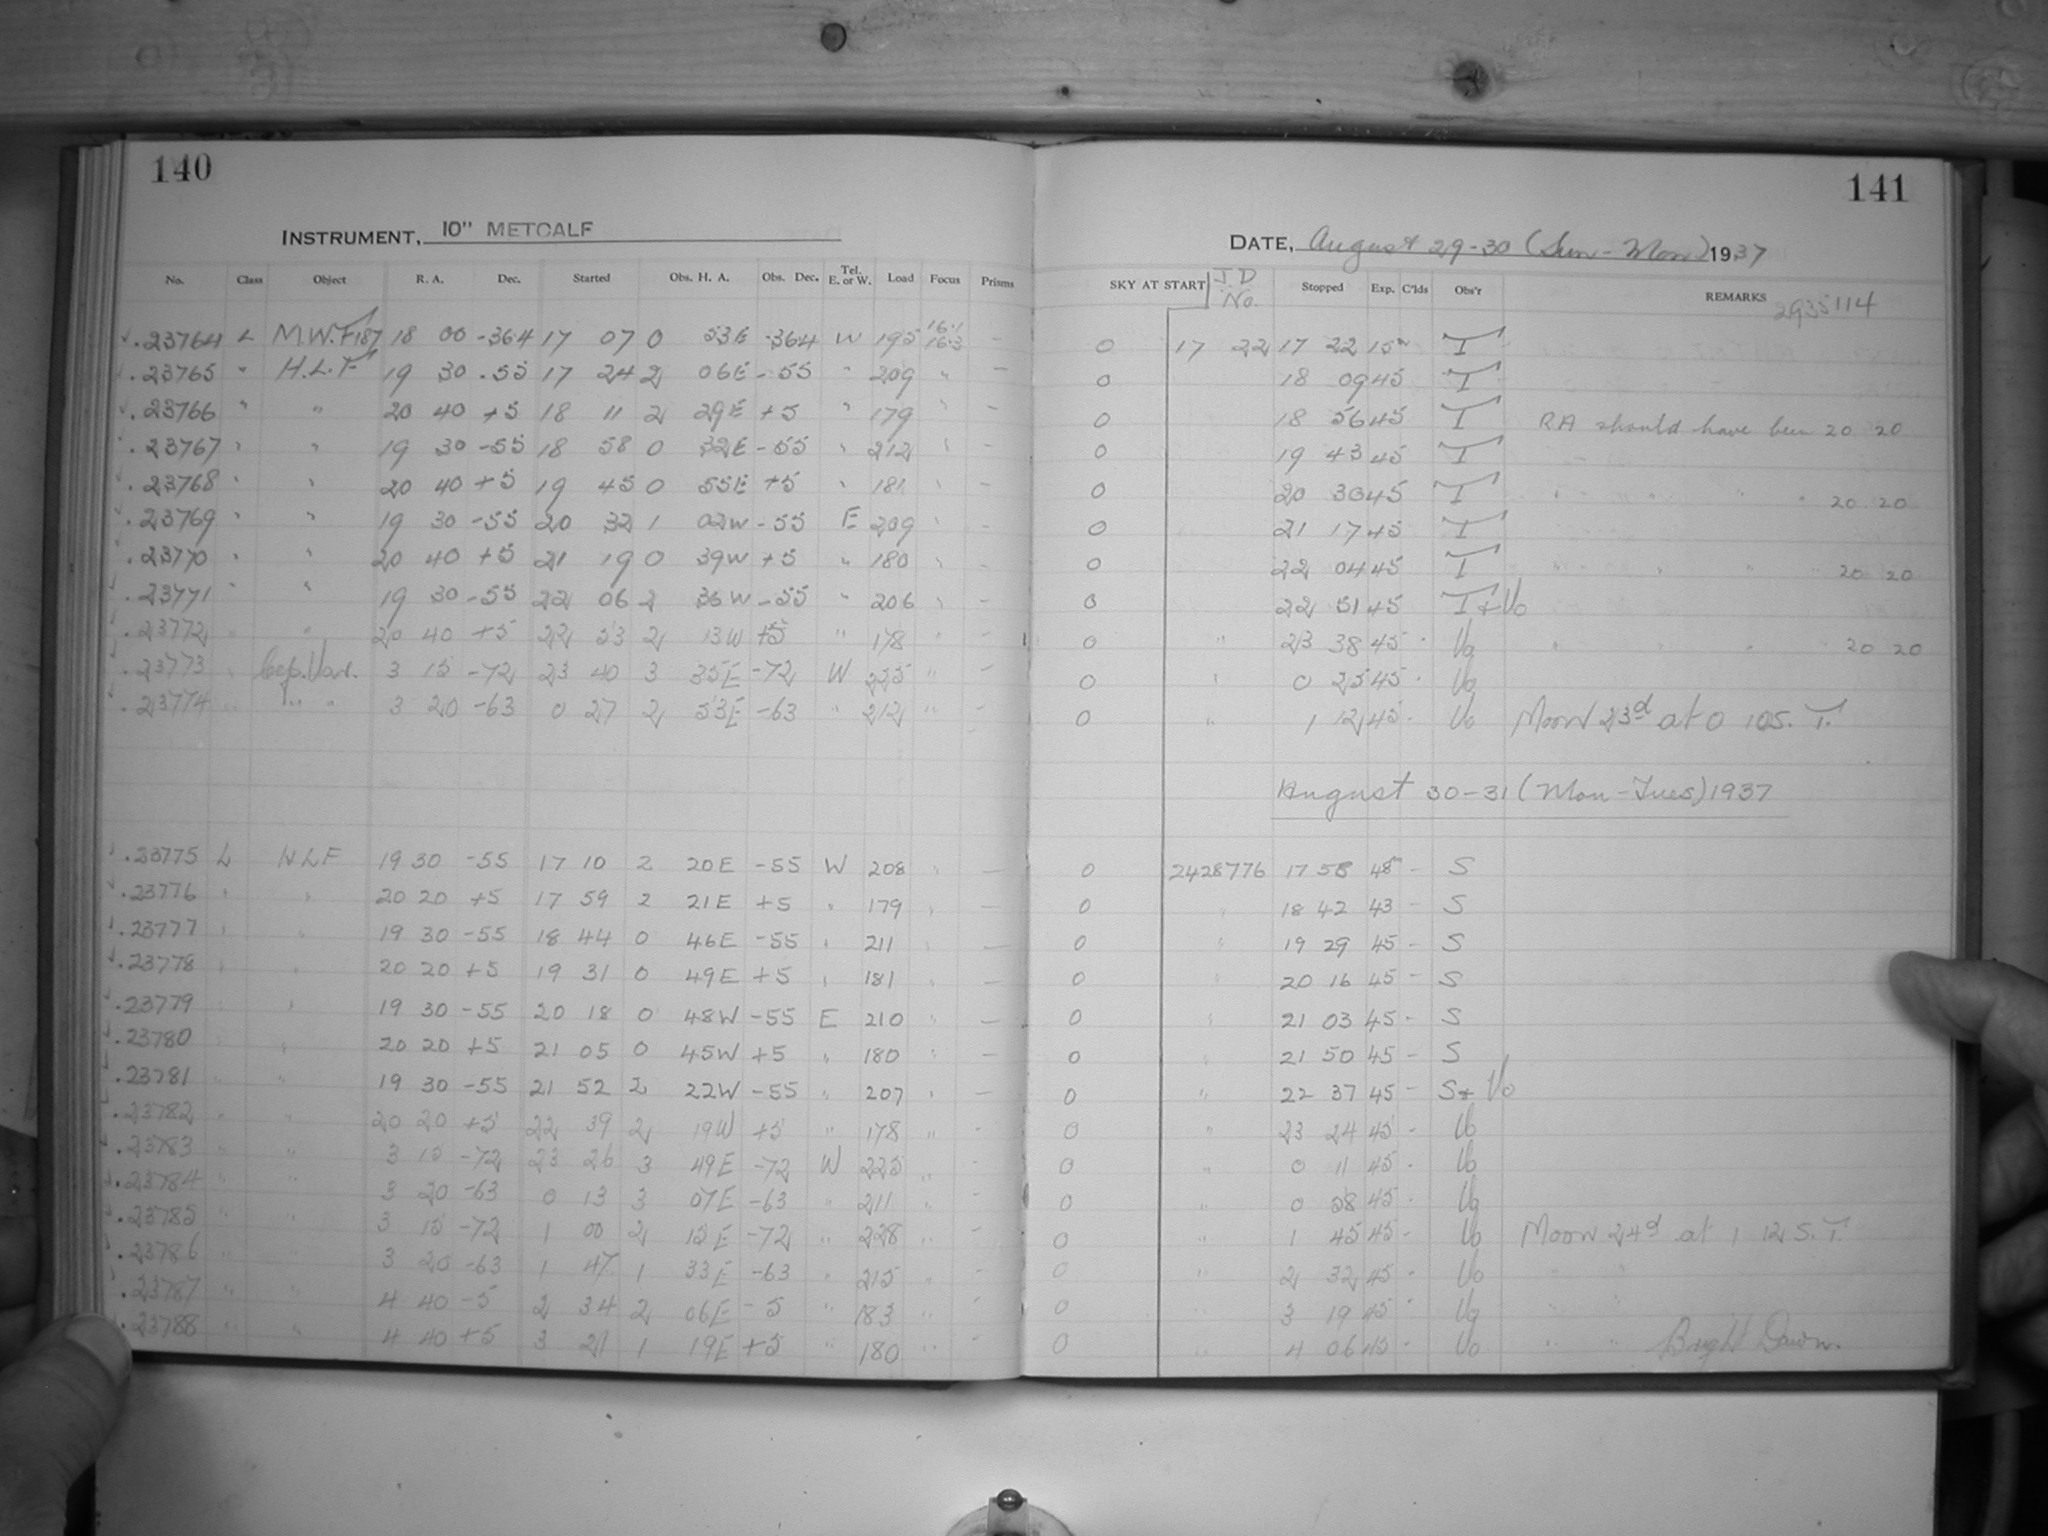 140
INSTRUMENT, 10" METCALF
No. Class Object R. A. Dec. Started Obs. H. A. Obs. Dec. Tel. E. or W. Load Focus Prisms
.23764 L M.W.F187 18 00 -36.4 17 07 0 53E -36.4 W 195 16.1 16.3 -
.23765 " H.L.F 19 30 -55 17 24 2 06E -55 " 209 " -
.23766 " " 20 40 +5 18 11 2 29E +5 " 179 " -
.23767 " " 19 30 -55 18 58 0 32E -55 " 212 " -
.23768 " " 20 40 +5 19 45 0 55E +5 " 181 " -
.23769 " " 19 30 -55 20 32 1 02W -55 E 209 " -
.23770 " " 20 40 +5 21 19 0 39W +5 " 180 " -
.23771 " " 19 30 -55 22 06 2 36W -55 " 206 " -
.23772 " " 20 40 +5 22 53 2 13W +5 " 178 " -
.23773 " Cep. Var. 3 15 -72 23 40 3 35E -72 W 225 " -
.23774 " " " 3 20 -63 0 27 2 53E -63 " 212 " -
.23775 L HLF 19 30 -55 17 10 2 20E -55 W 208 " -
.23776 " " 20 20 +5 17 59 2 21E +5 " 179 " -
.23777 " " 19 30 -55 18 44 0 46E -55 " 211 " -
.23778 " " 20 20 +5 19 31 0 49E +5 " 181 " -
.23779 " " 19 30 -55 20 18 0 48W -55 E 210 " -
.23780 " " 20 20 +5 21 05 0 45W +5 " 180 " -
.23781 " " 19 30 -55 21 52 2 22W -55 " 207 " -
.23782 " " 20 20 +5 22 39 2 19W +5 " 178 " -
.23783 " " 3 15 -72 23 26 3 49E -72 W 225 " -
.23784 " " 3 20 -63 0 13 3 07E -63 " 211 " -
.23785 " " 3 15 -72 1 00 2 15E -72 " 228 " -
.23786 " " 3 20 -63 1 47 1 33E -63 " 215 " -
.23787 " " 4 40 -5 2 34 2 06E -5 " 183 " -
.23788 " " 4 40 +5 3 21 1 19E +5 " 180 " -
141
DATE, August 29-30 (Sun-Mon) 1937
SKY AT START J D No. Stopped Exp. C'lds Obs'r REMARKS 2935114
0 17 22 17 22 15m T
0 18 09 45 T
0 18 56 45 T RA should have been 20 20
0 19 43 45 T
0 20 30 45 T " " " " 20 20
0 21 17 45 T
0 22 04 45 T " " " " 20 20
0 22 51 45 T & Vo
0 " 23 38 45 - Vo " " " " 20 20
0 " 0 25 45 - Vo
0 " 1 12 45 - Vo Moon 23d at 0 10 S. T.
August 30-31 (Mon-Tues) 1937
0 2428776 17 58 48m - S
0 " 18 42 43 - S
0 " 19 29 45 - S
0 " 20 16 45 - S
0 " 21 03 45 - S
0 " 21 50 45 - S
0 " 22 37 45 - S & Vo
0 " 23 24 45 - Vo
0 " 0 11 45 - Vo
0 " 0 58 45 - Vo
0 " 1 45 45 - Vo Moon 24d at 1 12 S. T.
0 " 2 32 45 - Vo " "
0 " 3 19 45 - Vo " "
0 " 4 06 45 - Vo " " Bright Dawn.